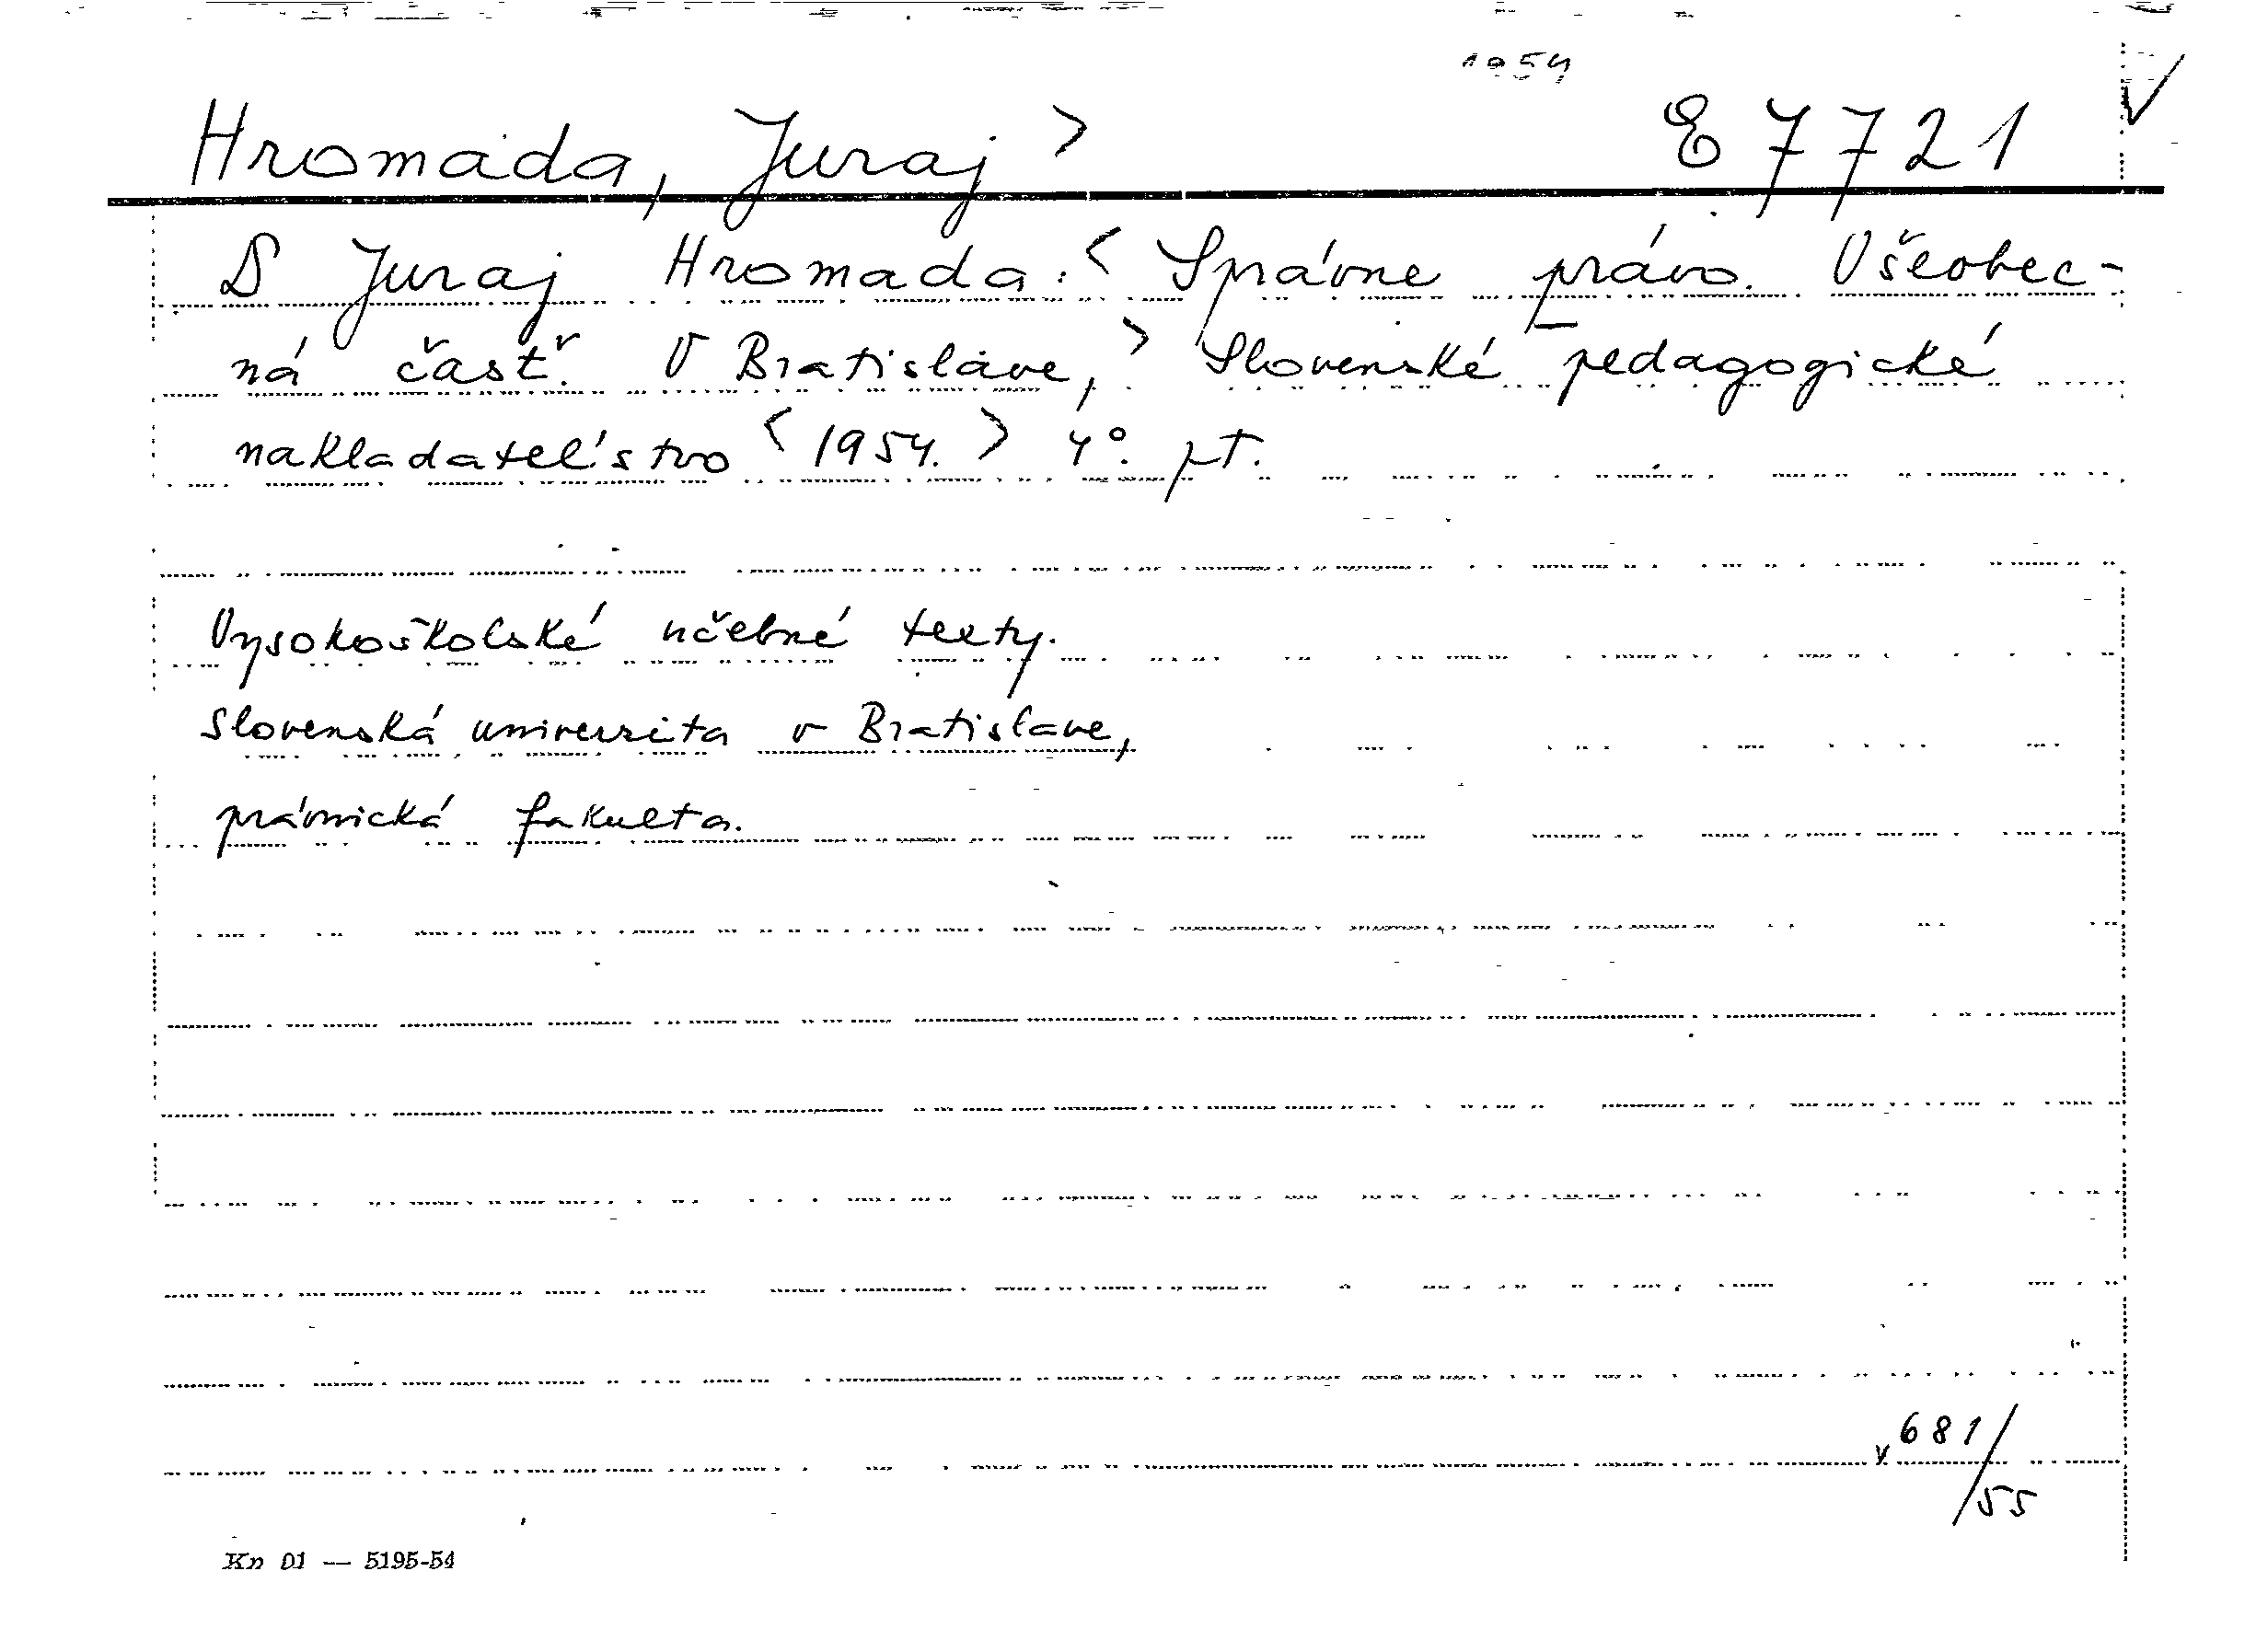 1954
Hromada, Juraj > E 7721 V
D Juraj Hromada: < Správne právo. Všeobec-
ná časť. V Bratislave, > Slovenské pedagogické
nakladateľstvo < 1954. > 4°. pt.
Vysokoškolské učebné texty.
Slovenská univerzita v Bratislave,
právnická fakulta.
v 681/55
Kn 01 — 5195-54